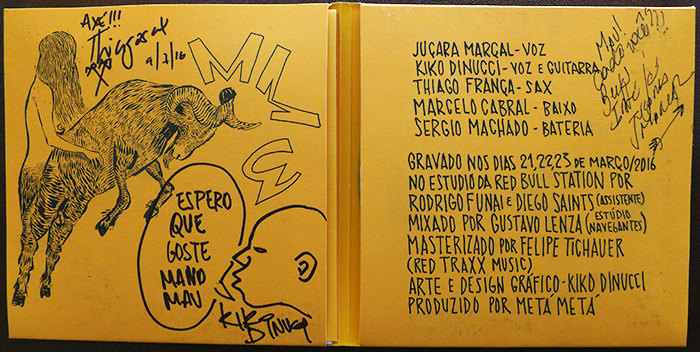 AXÉ!!!
9/7/16
MM
3
ESPERO
QUE
GOSTE
MANO
MAU
KIKO
DINUCCI
JUÇARA MARÇAL - VOZ
KIKO DINUCCI - VOZ E GUITARRA
THIAGO FRANÇA - SAX
MARCELO CABRAL - BAIXO
SERGIO MACHADO - BATERIA
GRAVADO NOS DIAS 21,22,23 DE MARÇO/2016
NO ESTUDIO DA RED BULL STATION POR
RODRIGO FUNAI E DIEGO SAINTS (ASSISTENTE)
MIXADO POR GUSTAVO LENZA (ESTÚDIO NAVEGANTES)
MASTERIZADO POR FELIPE TICHAUER
(RED TRAXX MUSIC)
ARTE E DESIGN GRÁFICO - KIKO DINUCCI
PRODUZIDO POR METÁ METÁ
Mau!
Cadê você???